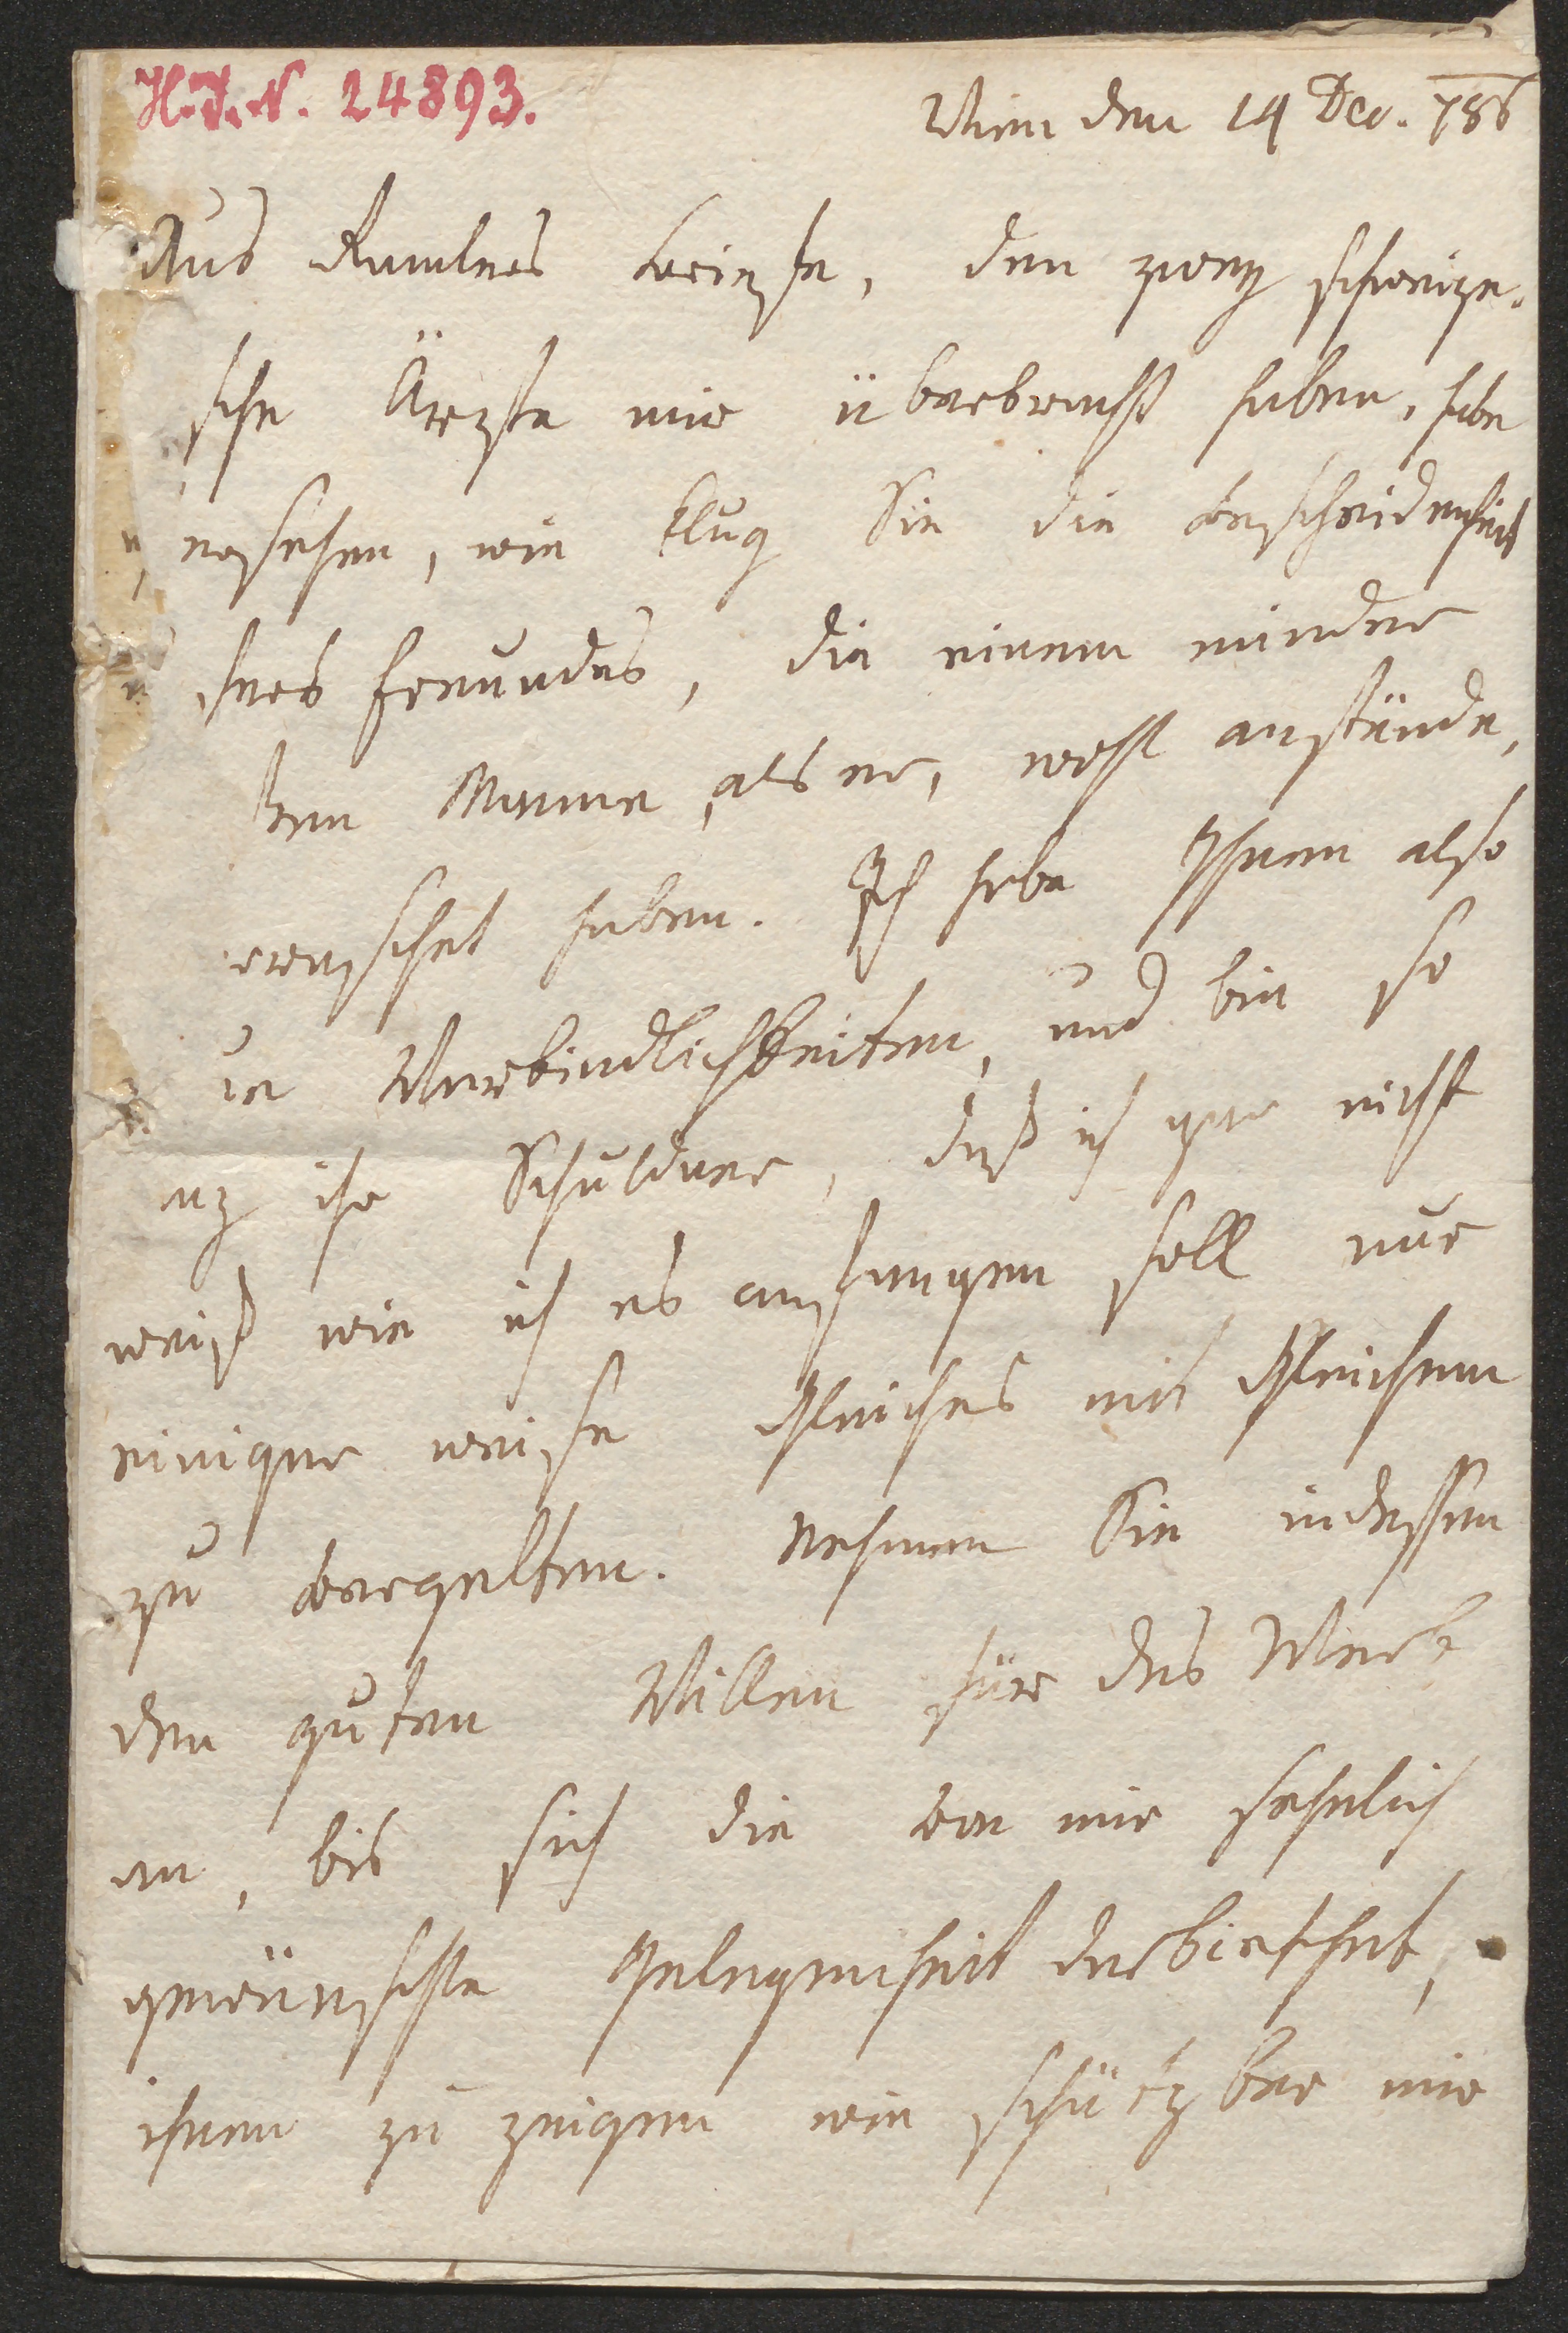 H.I.N. 24893.
Wien den 14 Dec. 786
Aus Briefe, den zwey schweize-
sche Ärzte mir überbracht haben, habe
ersehen, wie klug Sie die bescheidenheit
ihres freundes, die einem minder
Manne, als er, wohl anstünde,
haben. Ich habe Ihnen also
Verbindlichkeiten, und bin so
ihr Schuldner, daß ich gar nicht
weiß wie ich es anfangen soll nur
einiger weise Gleiches mit Gleichem
zu vergelten. Nehmen Sie indessen
den guten Willen für das Werk
an, bis sich die von mir sehnlich
gewünschte Gelegenheit darbiethet,
ihnen zu zeigen wie schätzbar mir